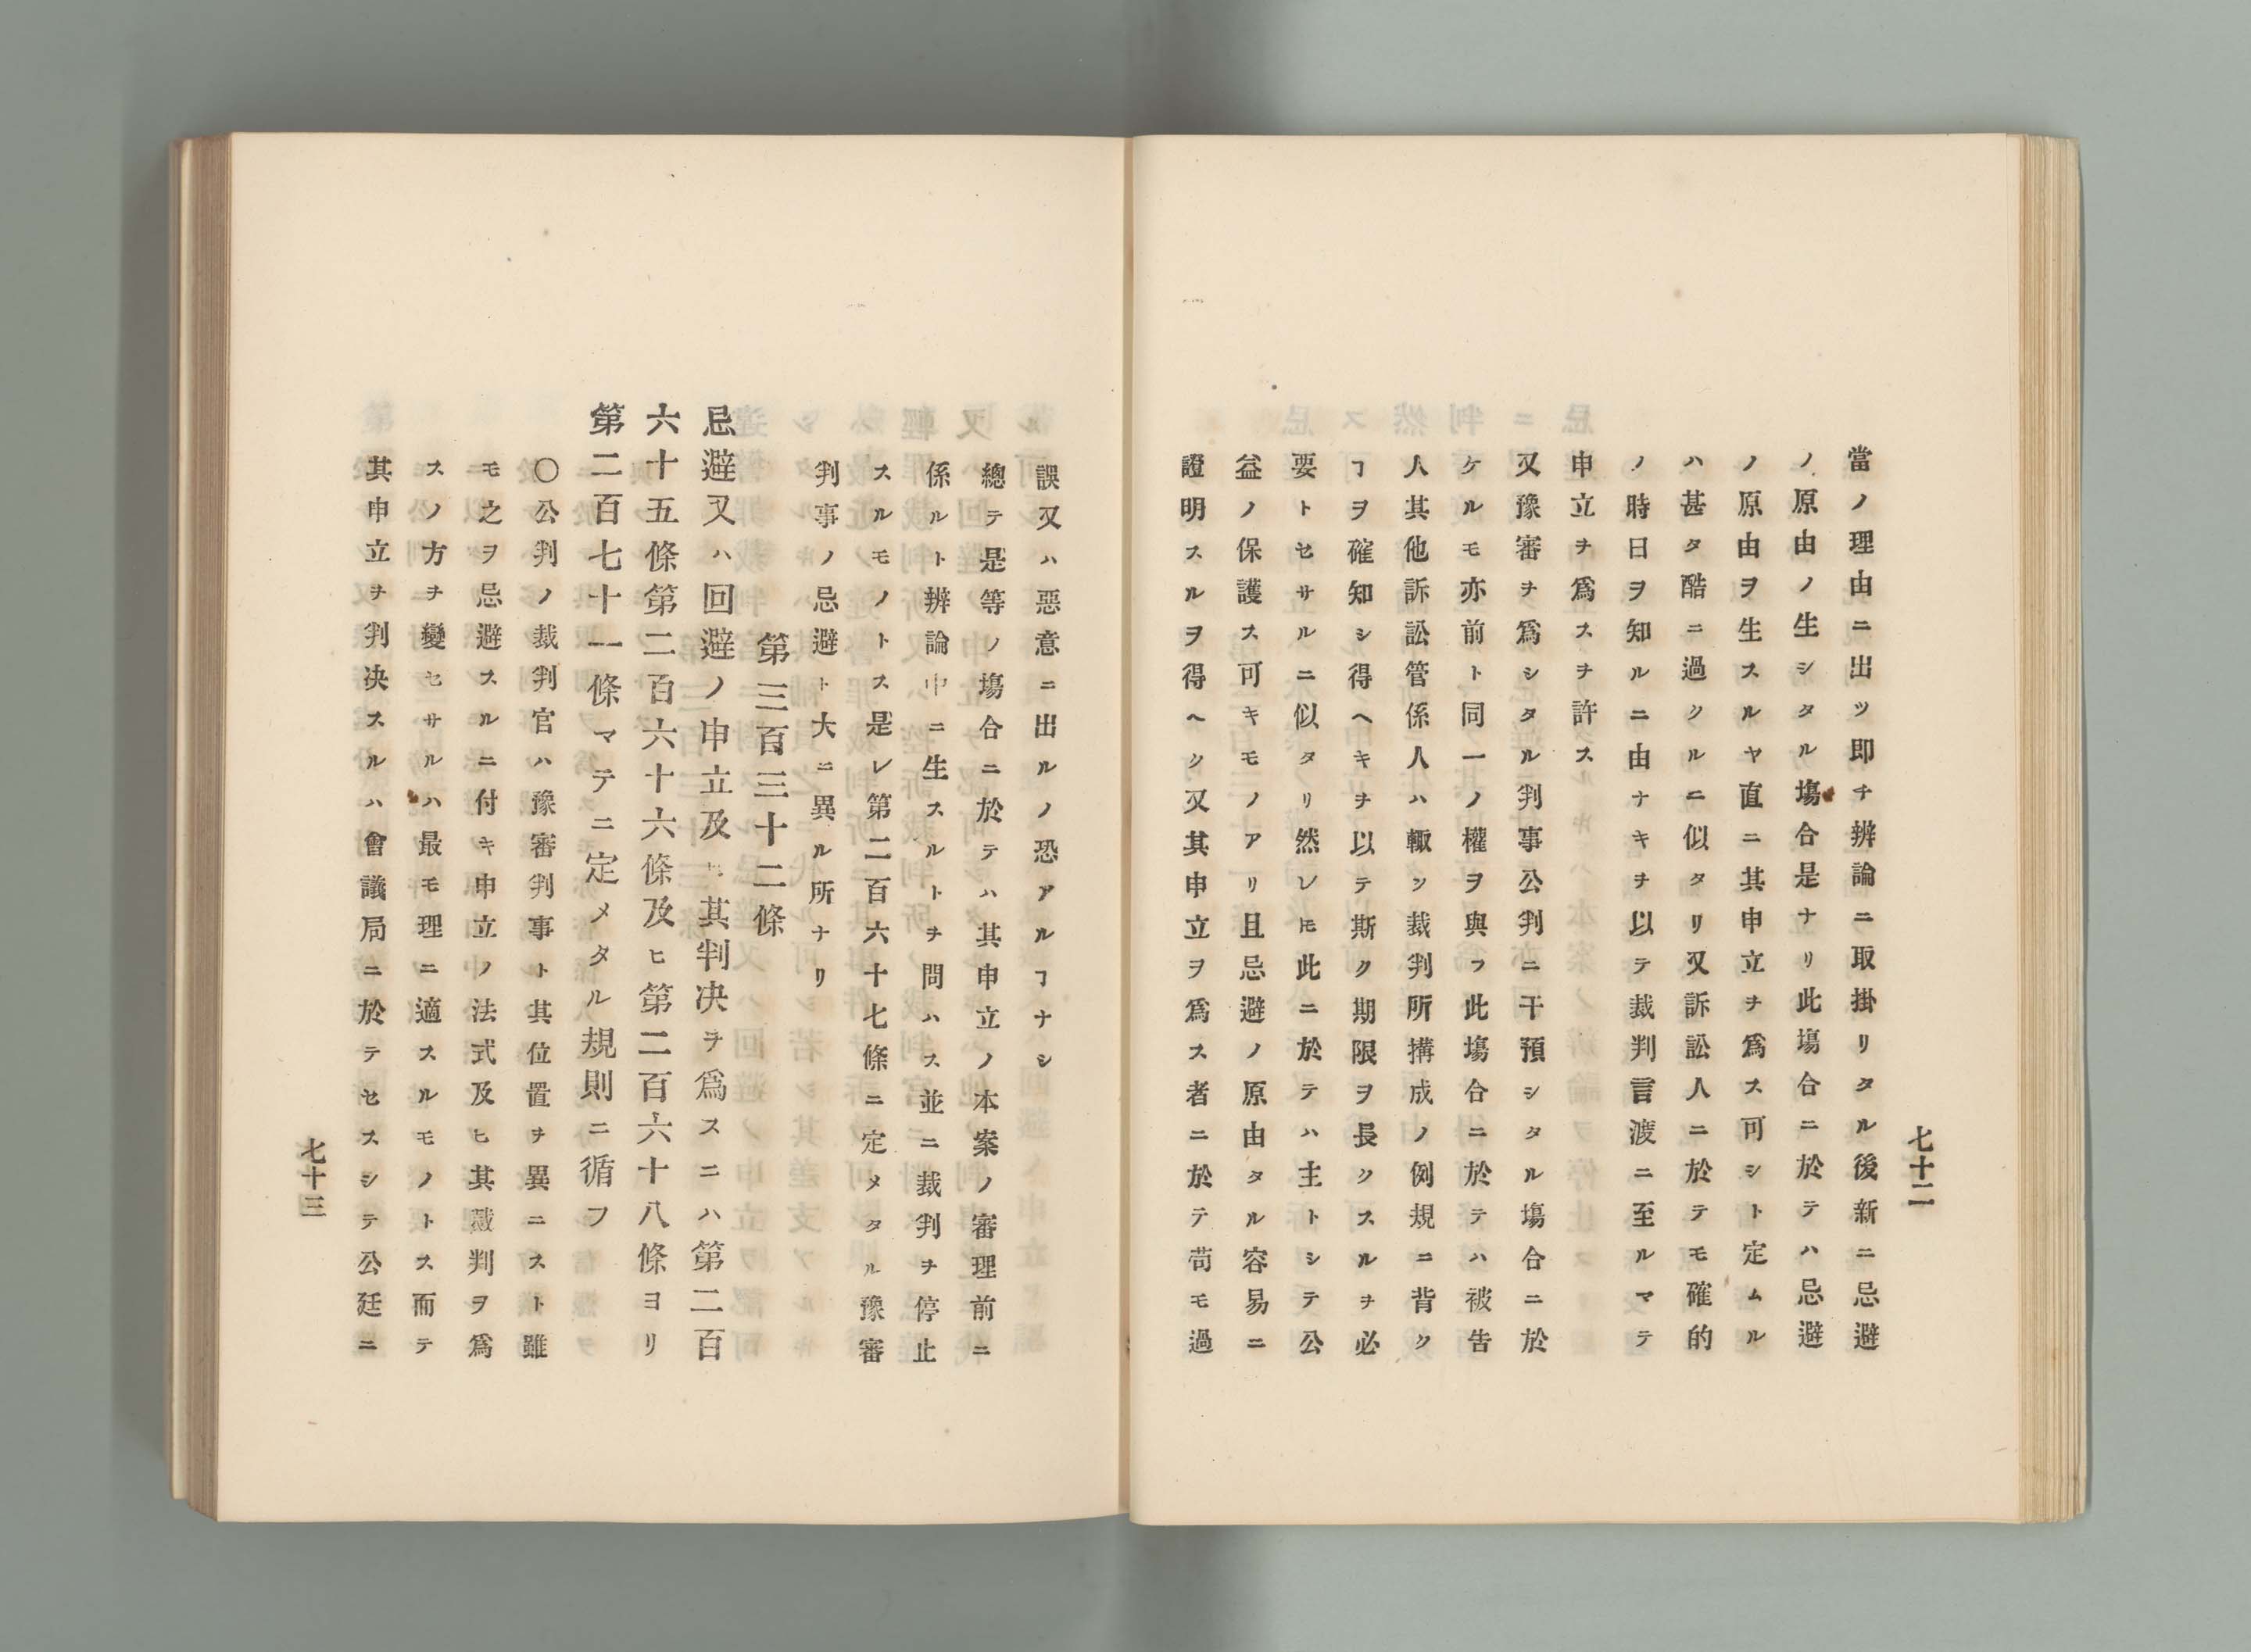 七十二
當ノ理由ニ出ツ即チ辨論ニ取掛リタル後新ニ忌避
ノ原由ノ生シタル塲合是ナリ此塲合ニ於テハ忌避
ノ原由ヲ生スルヤ直ニ其申立チ爲ス可シト定ムル
ハ甚タ酷ニ過クルニ似タリ又訴訟人ニ於テモ確的
ノ時日ヲ知ルニ由ナキチ以テ裁判言渡ニ至ルマテ
申立チ爲スヿヲ許ス
又豫審チ爲シタル判事公判ニ干預シタル塲合ニ於
ケルモ亦前ト同一ノ權ヲ與フ此塲合ニ於テハ被告
人其他訴訟管係人ハ輙ツ裁判所搆成ノ例規ニ背ク
ヿヲ確知シ得ヘキチ以テ斯ク期限ヲ長クスルチ必
要トセサルニ似タリ然レ𪜈此ニ於テハ主トシテ公
益ノ保護ス可キモノアリ且忌避ノ原由タル容易ニ
證明スルヲ得ヘク又其申立ヲ爲ス者ニ於テ苟モ過
誤又ハ惡意ニ出ルノ恐アルヿナシ
總テ是等ノ塲合ニ於テハ其申立ノ本案ノ審理前ニ
係ルト辨論中ニ生スルトチ問ハス並ニ裁判チ停止
スルモノトス是レ第二百六十七條ニ定メタル豫審
判事ノ忌避ト大ニ異ル所ナリ
第三百三十二條
忌避又ハ回避ノ申立及ヒ其判决チ爲スニハ第二百
六十五條第二百六十六條及ヒ第二百六十八條ヨリ
第二百七十一條マテニ定メタル規則ニ循フ
〇公判ノ裁判官ハ豫審判事ト其位置チ異ニスト雖
モ之ヲ忌避スルニ付キ申立ノ法式及ヒ其裁判ヲ爲
スノ方チ變セサルハ最モ理ニ適スルモノトス而テ
其申立チ判决スルハ會議局ニ於テセスシテ公廷ニ
七十三